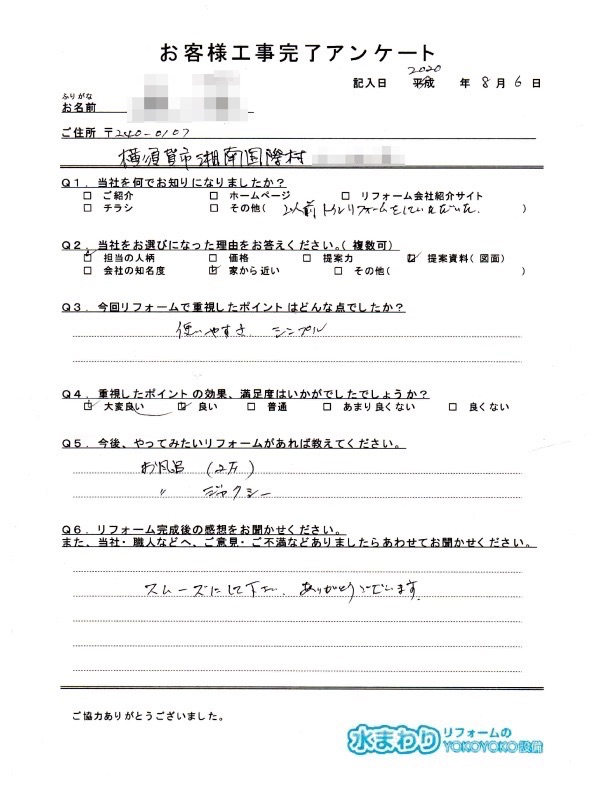 お客様工事完了アンケート
2020
記入日 平成 年 8 月 6 日
ふりがな
お名前
ご住所 〒240-0107
横須賀市湘南国際村
Q1．当社を何でお知りになりましたか？
□ ご紹介 □ ホームページ □ リフォーム会社紹介サイト
□ チラシ □ その他( 以前トイレリフォームをしていただいた. )
Q2．当社をお選びになった理由をお答えください。(複数可)
☑ 担当の人柄 □ 価格 □ 提案力 ☑ 提案資料(図面)
□ 会社の知名度 ☑ 家から近い □ その他( )
Q3．今回リフォームで重視したポイントはどんな点でしたか？
使いやすさ. シンプル
Q4．重視したポイントの効果、満足度はいかがでしたでしょうか？
☑ 大変良い ☑ 良い □ 普通 □ あまり良くない □ 良くない
Q5．今後、やってみたいリフォームがあれば教えてください。
お風呂 (2F)
〃 ジャクジー
Q6．リフォーム完成後の感想をお聞かせください。
また、当社・職人などへ、ご意見・ご不満などありましたらあわせてお聞かせください。
スムーズにして下さい. ありがとうございます.
ご協力ありがとうございました。
水まわりリフォームの
YOKOYOKO設備